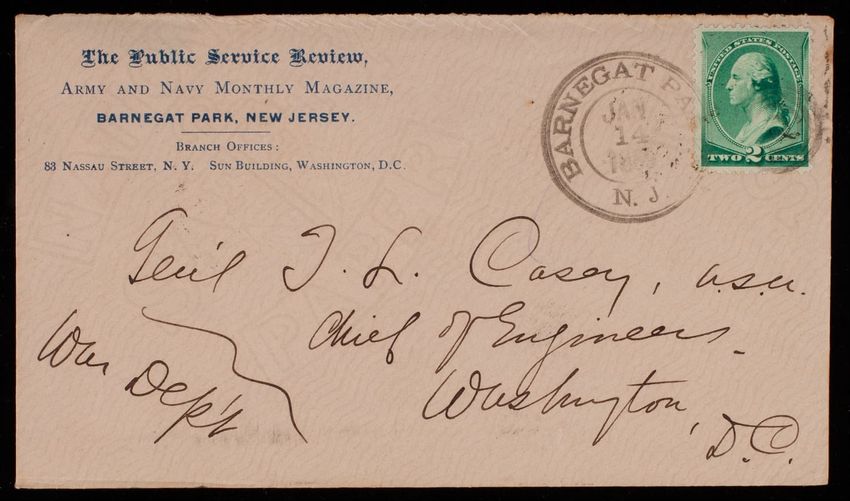 The Public Service Review,
Army and Navy Monthly Magazine,
BARNEGAT PARK, NEW JERSEY.
Branch Offices:
83 Nassau Street, N. Y. Sun Building, Washington, D.C.
BARNEGAT PA
JAN
14
N. J.
UNITED STATES POSTAGE
TWO 2 CENTS
Gen'l T. L. Casey, U.S.A.
Chief of Engineers
War Dep't
Washington,
D.C.